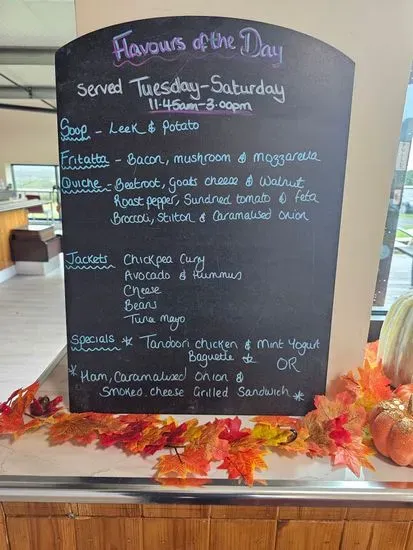 Flavours of the Day
Served Tuesday-Saturday
11.45am-3.00pm
Soop - Leek & Potato
Fritatta - Bacon, mushroom & mozzarella
Quiche - Beetroot, Goats cheese & Walnut
Roast pepper, Sundried tomato & feta
Broccoli, Stilton & Caramalised onion
Jackets Chickpea Curry
Avocado & Hummus
Cheese
Beans
Tuna Mayo
Specials * Tandoori chicken & Mint Yogurt
Baguette * OR
* Ham, Caramalised Onion &
Smoked cheese Grilled Sandwich *